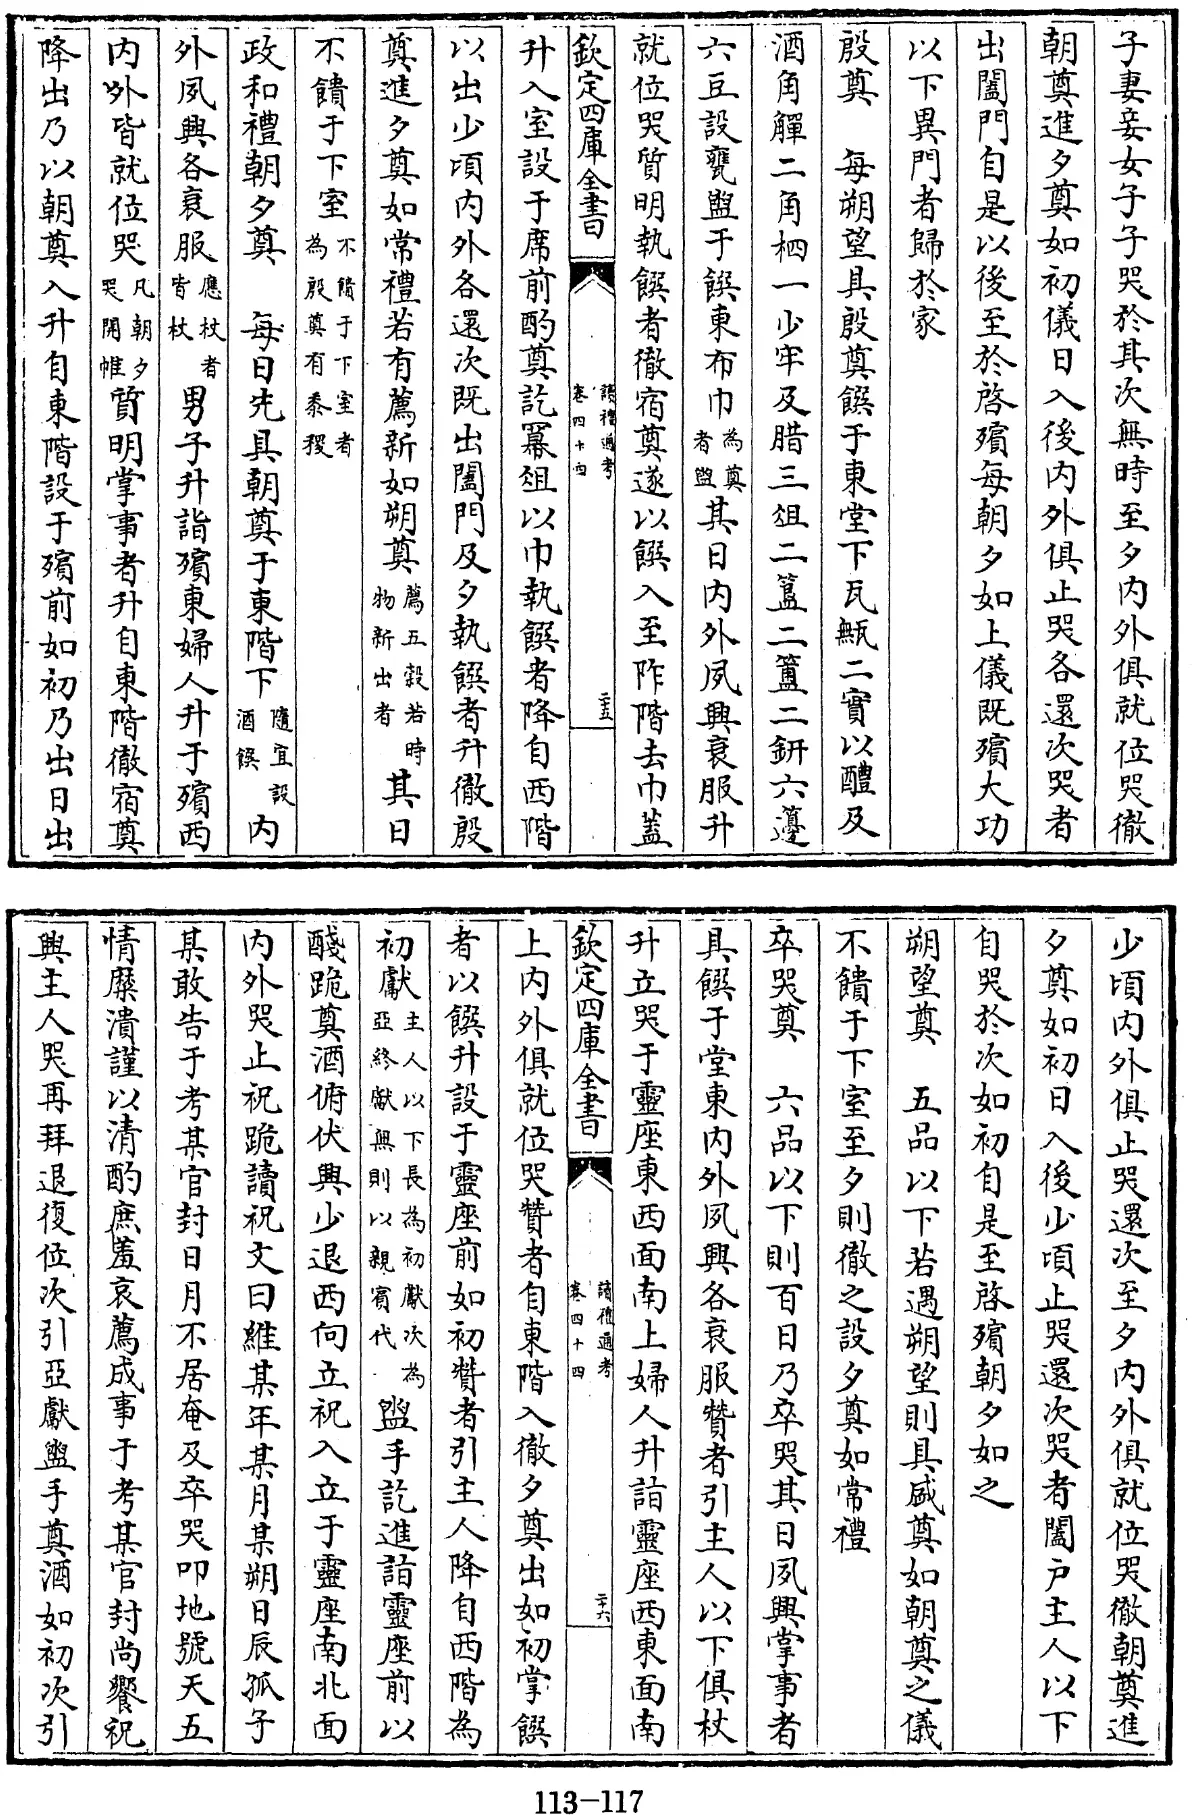 子妻妾女子子哭於其次無時至夕内外俱就位哭徹
朝奠進夕奠如初儀日入後内外俱止哭各還次哭者
出闔門自是以後至於啓殯每朝夕如上儀既殯大功
以下異門者歸於家
殷奠　每朔望具殷奠饌于東堂下瓦甒二實以醴及
酒角觶二角柶一少牢及腊三俎二簋二簠二鉶六籩
六豆設甕盥于饌東布巾為奠者盥其日内外夙興衰服升
就位哭質明執饌者徹宿奠遂以饌入至阼階去巾蓋
欽定四庫全書　讀禮通考　卷四十四　二十五
升入室設于席前酌奠訖冪俎以巾執饌者降自西階
以出少頃内外各還次既出闔門及夕執饌者升徹殷
奠進夕奠如常禮若有薦新如朔奠薦五穀若時物新出者其日
不饋于下室不饋于下室者為殷奠有黍稷
政和禮朝夕奠　每日先具朝奠于東階下隨宜設酒饌内
外夙興各衰服應杖者皆杖男子升詣殯東婦人升于殯西
内外皆就位哭凡朝夕哭開帷質明掌事者升自東階徹宿奠
降出乃以朝奠入升自東階設于殯前如初乃出日出
少頃内外俱止哭還次至夕内外俱就位哭徹朝奠進
夕奠如初日入後少頃止哭還次哭者闔户主人以下
自哭於次如初自是至啓殯朝夕如之
朔望奠　五品以下若遇朔望則具盛奠如朝奠之儀
不饋于下室至夕則徹之設夕奠如常禮
卒哭奠　六品以下則百日乃卒哭其日夙興掌事者
具饌于堂東内外夙興各衰服贊者引主人以下俱杖
升立哭于靈座東西面南上婦人升詣靈座西東面南
欽定四庫全書　讀禮通考　卷四十四　二十六
上内外俱就位哭贊者自東階入徹夕奠出如初掌饌
者以饌升設于靈座前如初贊者引主人降自西階為
初獻主人以下長為初獻次為亞終獻無則以親賓代盥手訖進詣靈座前以
醆跪奠酒俯伏興少退西向立祝入立于靈座南北面
内外哭止祝跪讀祝文曰維某年某月某朔日辰孤子
某敢告于考某官封日月不居奄及卒哭叩地號天五
情糜潰謹以清酌庶羞哀薦成事于考某官封尚饗祝
興主人哭再拜退復位次引亞獻盥手奠酒如初次引
113-117